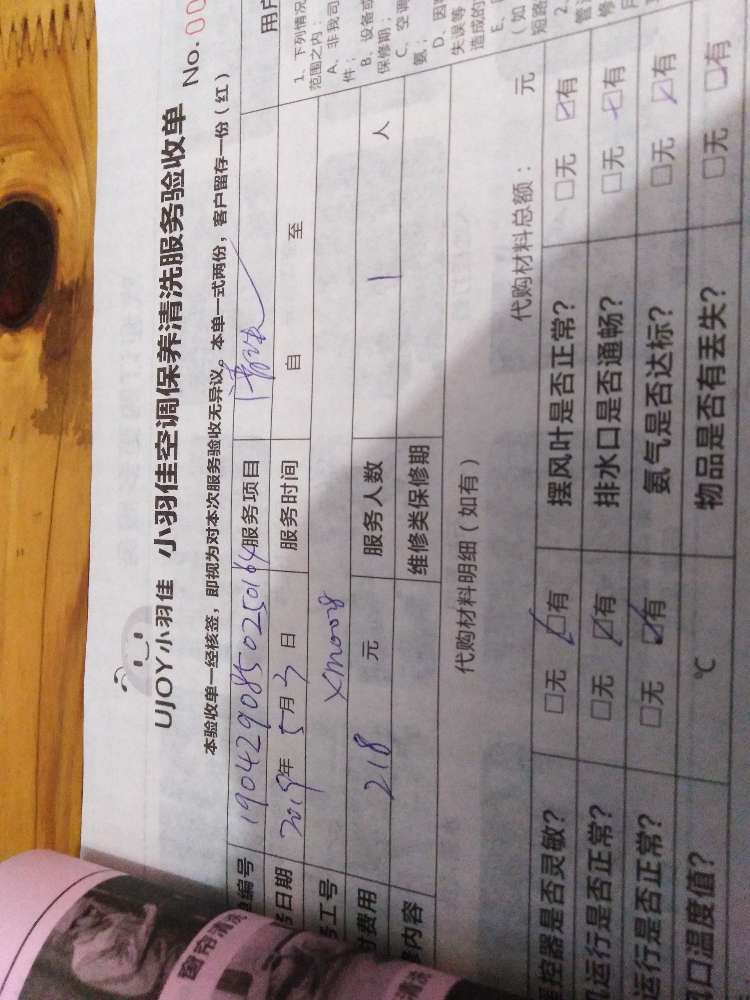 UJOY小羽佳 小羽佳空调保养清洗服务验收单 No.00
本验收单一经核签，即视为对本次服务验收无异议。本单一式两份，客户留存一份（红）
编号 1904290850250164 服务项目 清洗
日期 2019年5月3日 服务时间 自 至
工号 xm008
费用 218 元 服务人数 1 人
内容 维修类保修期
代购材料明细（如有） 代购材料总额： 元
控器是否灵敏？ □无 ☑有 摆风叶是否正常？ □无 ☑有
运行是否正常？ □无 ☑有 排水口是否通畅？ □无 ☑有
运行是否正常？ □无 ☑有 氨气是否达标？ □无 ☑有
口温度值？ ℃ 物品是否有丢失？ □无 □有
用户
1、下列情况
范围之内：
A、非我司
件；
B、设备或
保修期；
C、空调
氨；
D、因
失误等
造成的
E、
（如
短路
2、
管
修
窗帘清洗
清洗